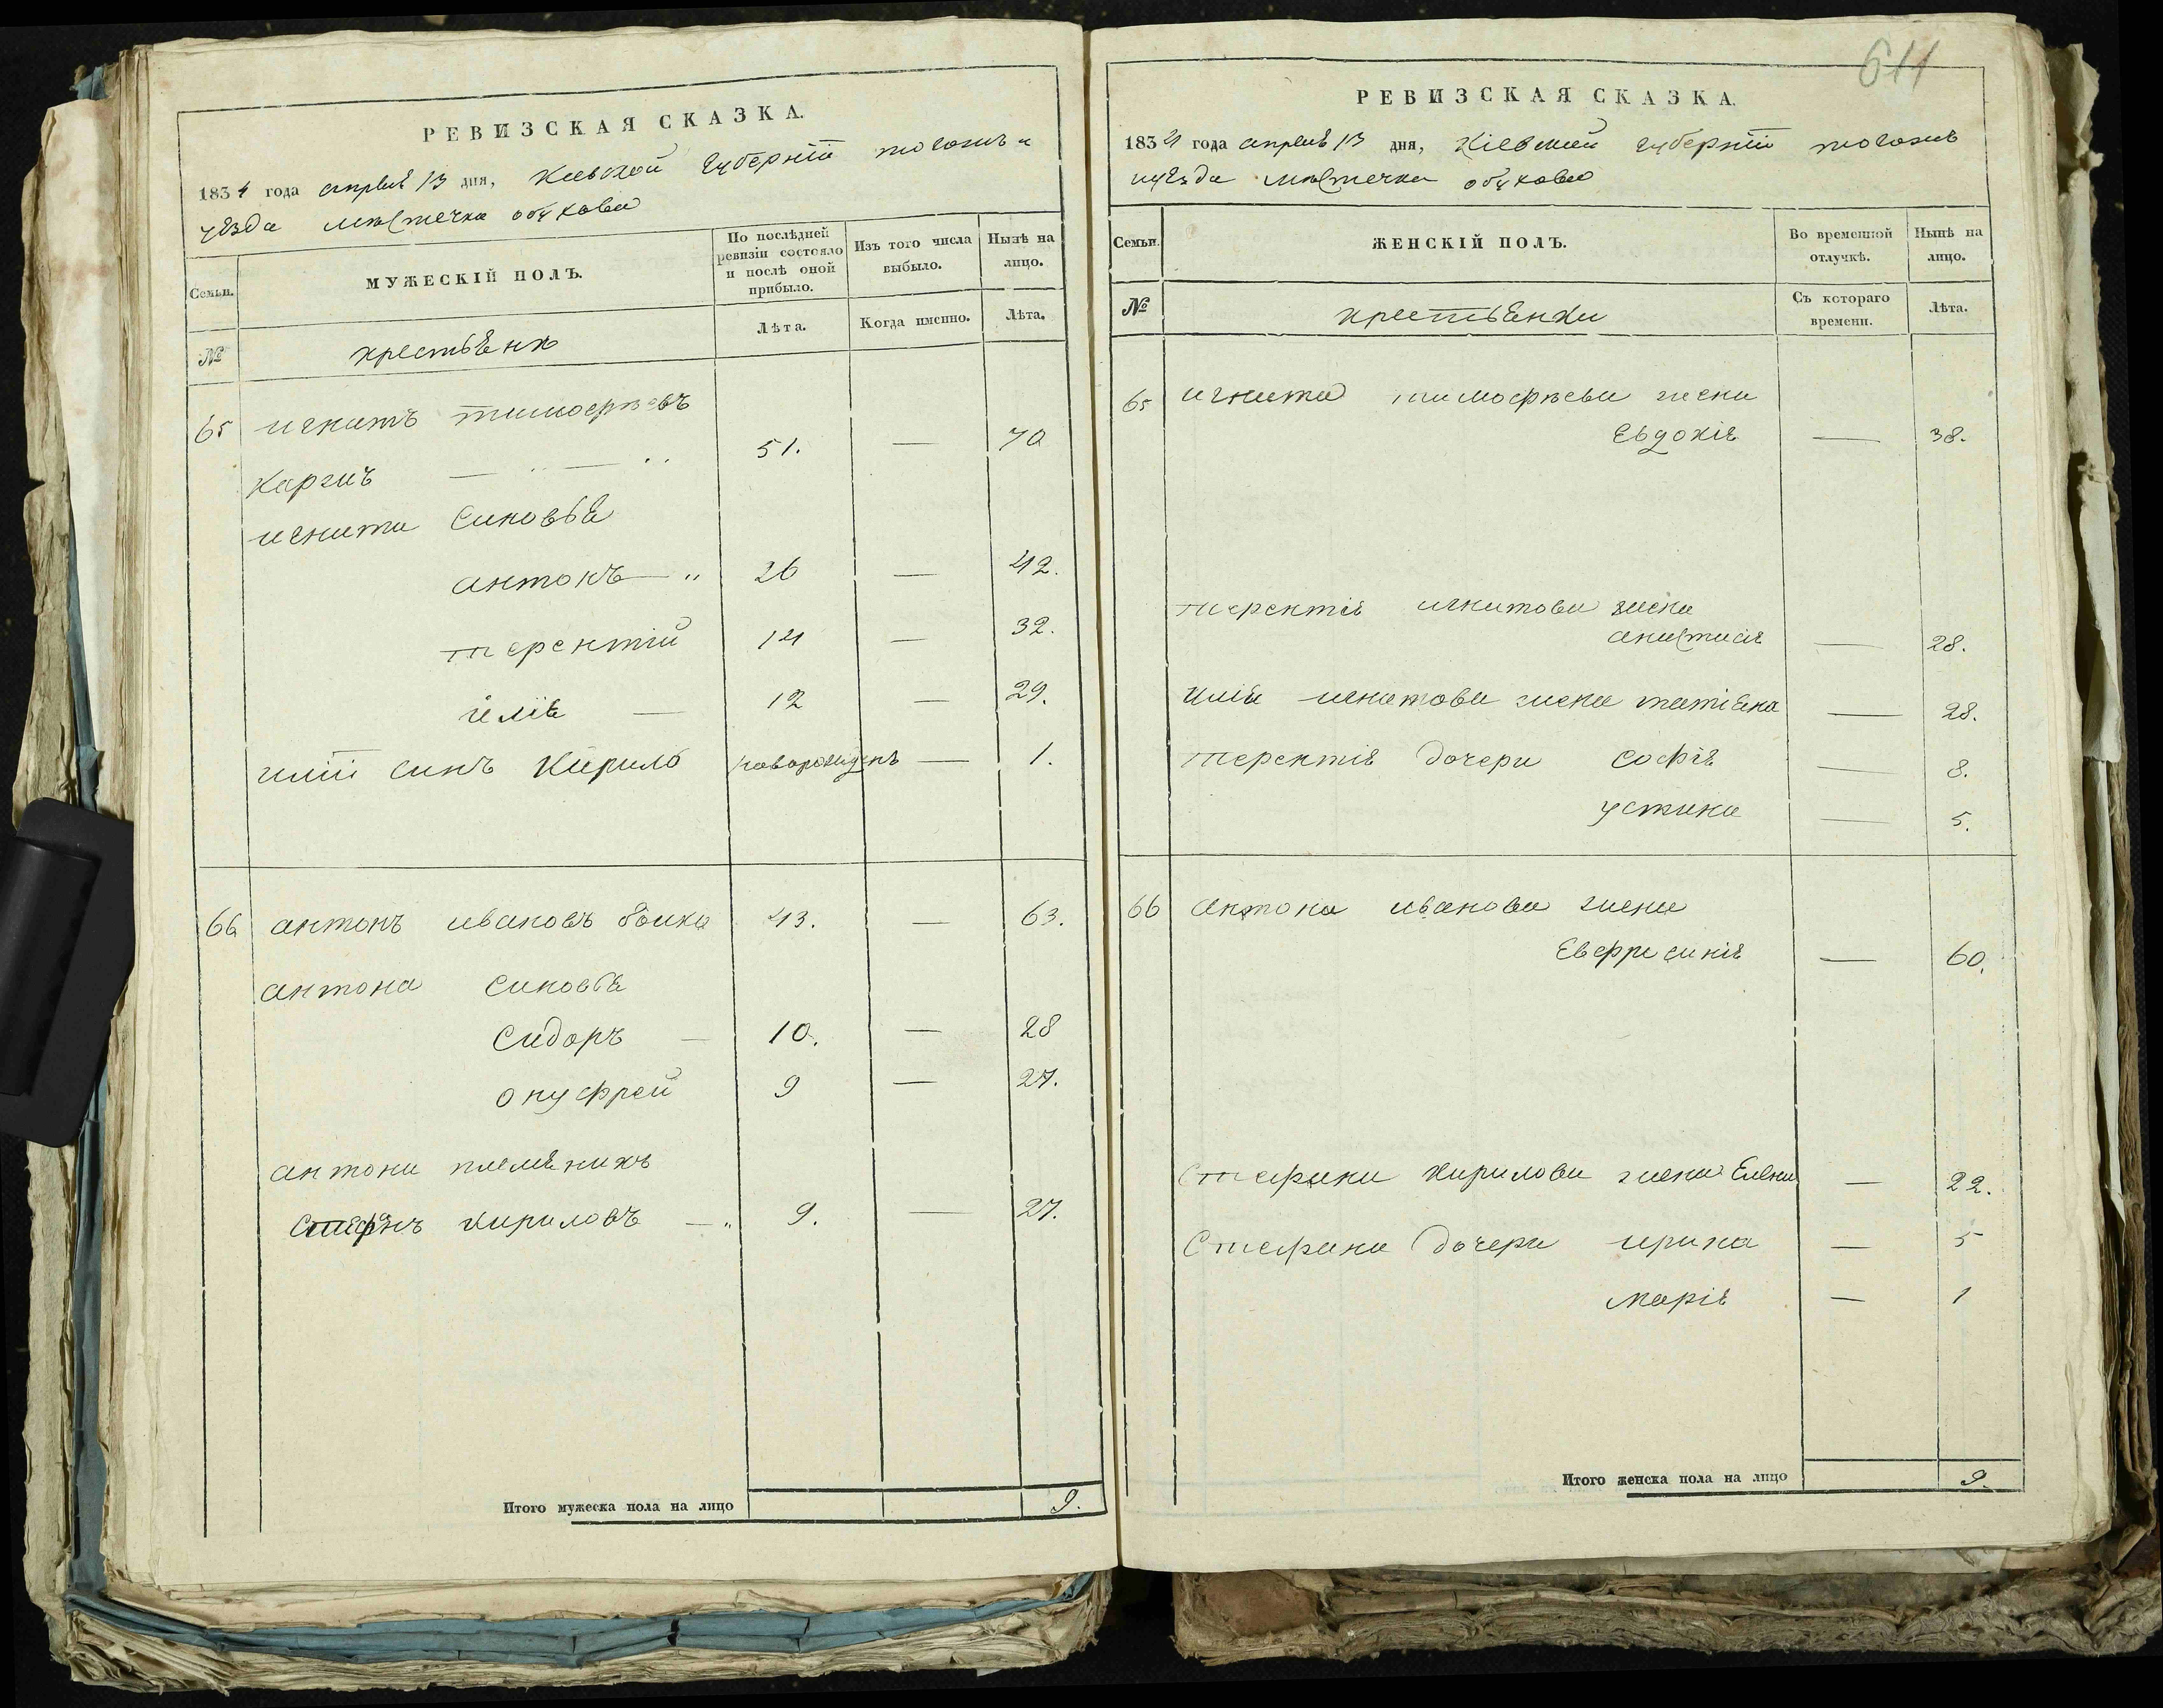 РЕВИЗСКАЯ СКАЗКА.
1834 года апреля 13 дня, Киевской губернїи тогожъ
уѣзда мѣстечка обухова
Семьи.
МУЖЕСКІЙ ПОЛЪ.
По послѣдней ревизіи состояло и послѣ оной прибыло.
Изъ того числа выбыло.
Нынѣ на лицо.
№
крестьянъ
Лѣта.
Когда именно.
Лѣта.
65 игнатъ тимофѣевъ
51. — 70
игната синовья
антонъ — 26 — 42.
терентїй 14 — 32.
илія — 12 — 29.
илїи синъ Кирило новорожденъ — 1.
66 антонъ ивановъ 43. — 63.
антона синовья
Сидоръ — 10. — 28
онуфрей 9 — 27.
антона племѣникъ
Стефанъ кириловъ — 9. — 27.
Итого мужеска пола на лицо 9.
611
РЕВИЗСКАЯ СКАЗКА.
1834 года апреля 13 дня, Кіевской губернїи тогожъ
уѣзда мѣстечка обухова
Семьи.
ЖЕНСКІЙ ПОЛЪ.
Во временной отлучкѣ.
Нынѣ на лицо.
№
крестьянки
Съ котораго времени.
Лѣта.
65 игната тимофѣева жена
Евдокія — 38.
терентія игнатова жена
анастасія — 28.
илїи игнатова жена татіяна — 28.
терентія дочери софія — 8.
устина — 5.
66 антона иванова жена
Евфросинія — 60.
Стефана кирилова жена Елена — 22.
Стефана дочери ирина — 5
марія — 1
Итого женска пола на лицо 9.